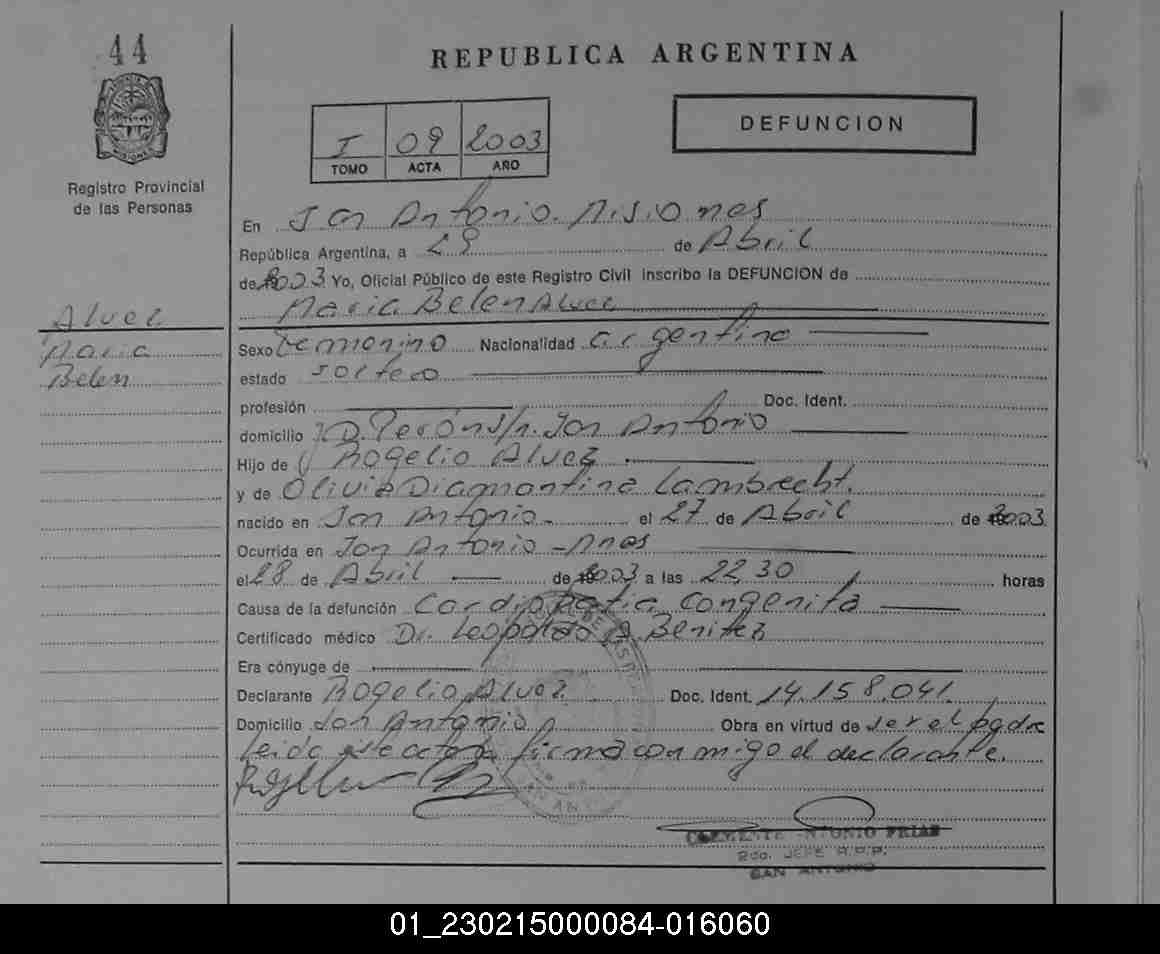 44
REPUBLICA ARGENTINA
DEFUNCION
I 09 2003
TOMO ACTA AÑO
MISIONES
Registro Provincial
de las Personas
En San Antonio. Misiones
República Argentina, a 29 de Abril
de 2003 Yo, Oficial Público de este Registro Civil inscribo la DEFUNCION de
Maria Belen Alvez
Alvez
Maria
Belen
Sexo Femenino Nacionalidad argentina
estado soltero
profesión Doc. Ident.
domicilio J.D. Perón s/n. San Antonio
Hijo de Rogelio Alvez
y de Olivia Diamantina Lambrecht.
nacido en San Antonio el 27 de Abril de 2003
Ocurrida en San Antonio - Mnes
el 28 de Abril de 2003 a las 22,30 horas
Causa de la defunción Cardiopatia Congenita
Certificado médico Dr. Leopoldo A. Benitez
Era cónyuge de
Declarante Rogelio Alvez Doc. Ident. 14.158.041.
Domicilio San Antonio Obra en virtud de ser el padre
Leida este acta firma con migo el declarante.
CLEMENTE ANTONIO FRIAS
2do. JEFE R.P.P.
SAN ANTONIO
01_230215000084-016060